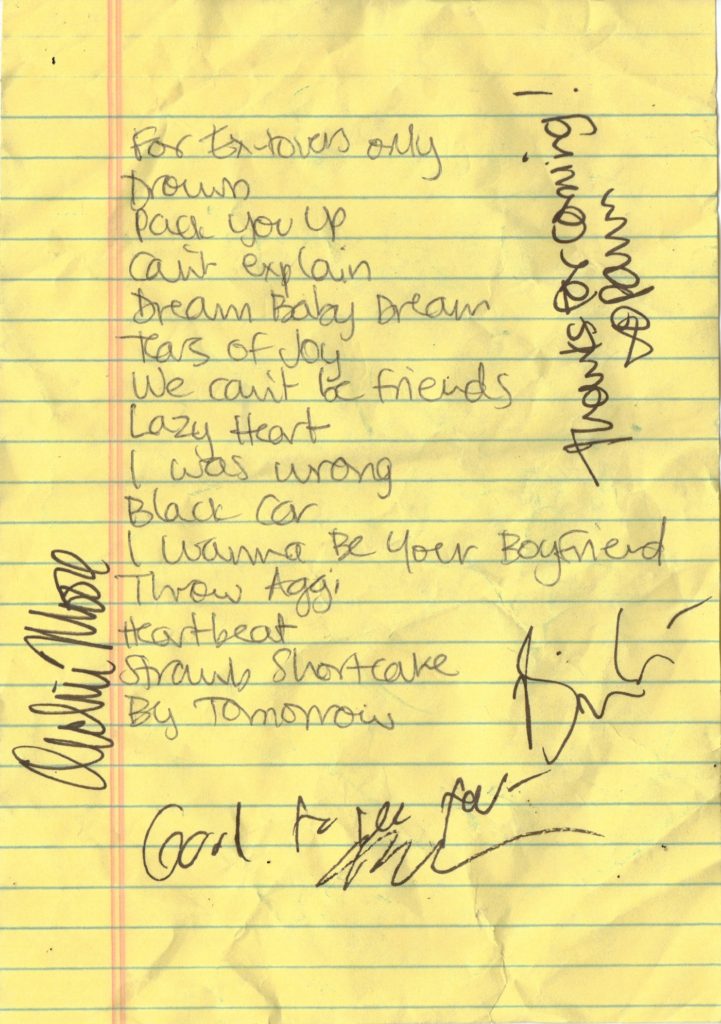 For Ex-lovers only
Drown
Pack you up
Can't explain
Dream Baby Dream
Tears of Joy
We can't be friends
Lazy Heart
I was wrong
Black Car
I wanna Be Your Boyfriend
Throw Aggi
Heartbeat
Strawb Shortcake
By Tomorrow
Thanks for coming!
Good to see you